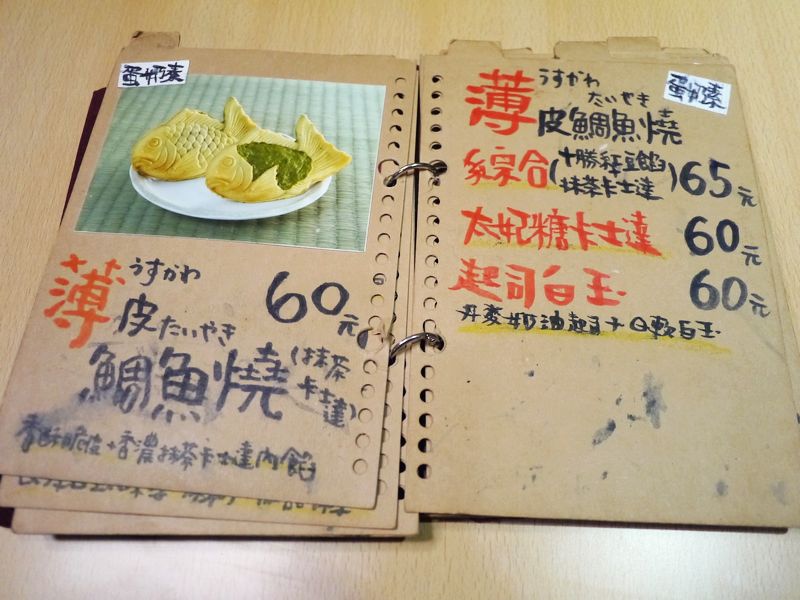 蛋奶素
薄皮鯛魚燒
うすかわ
たいやき
60元
(抹茶卡士達)
香酥脆皮+香濃抹茶卡士達內餡
蛋奶素
薄皮鯛魚燒
うすかわ
たいやき
綜合(十勝紅豆餡 抹茶卡士達)65元
太妃糖卡士達 60元
起司白玉 60元
丹麥奶油起司+Q軟白玉